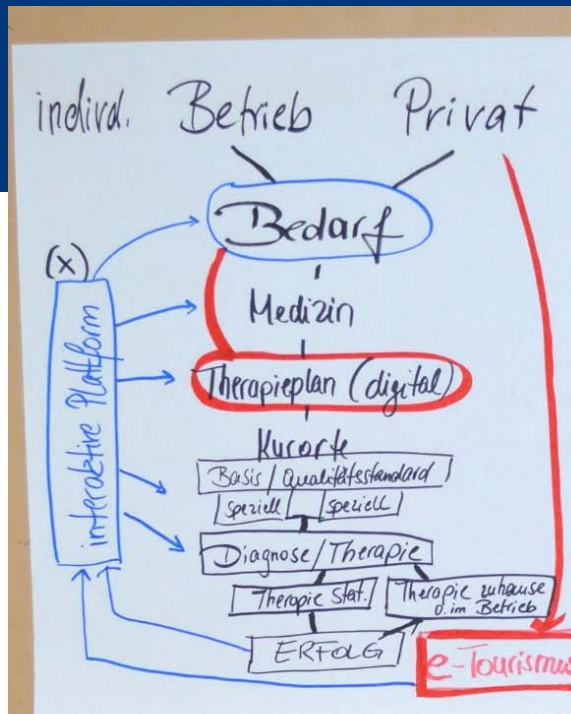 individ. Betrieb Privat
Bedarf
(x)
Medizin
interaktive Plattform
Therapieplan (digital)
Kurorte
Basis/Qualitätsstandard
speziell speziell
Diagnose/Therapie
Therapie Stat.
Therapie zuhause
o. im Betrieb
ERFOLG
e-Tourismus